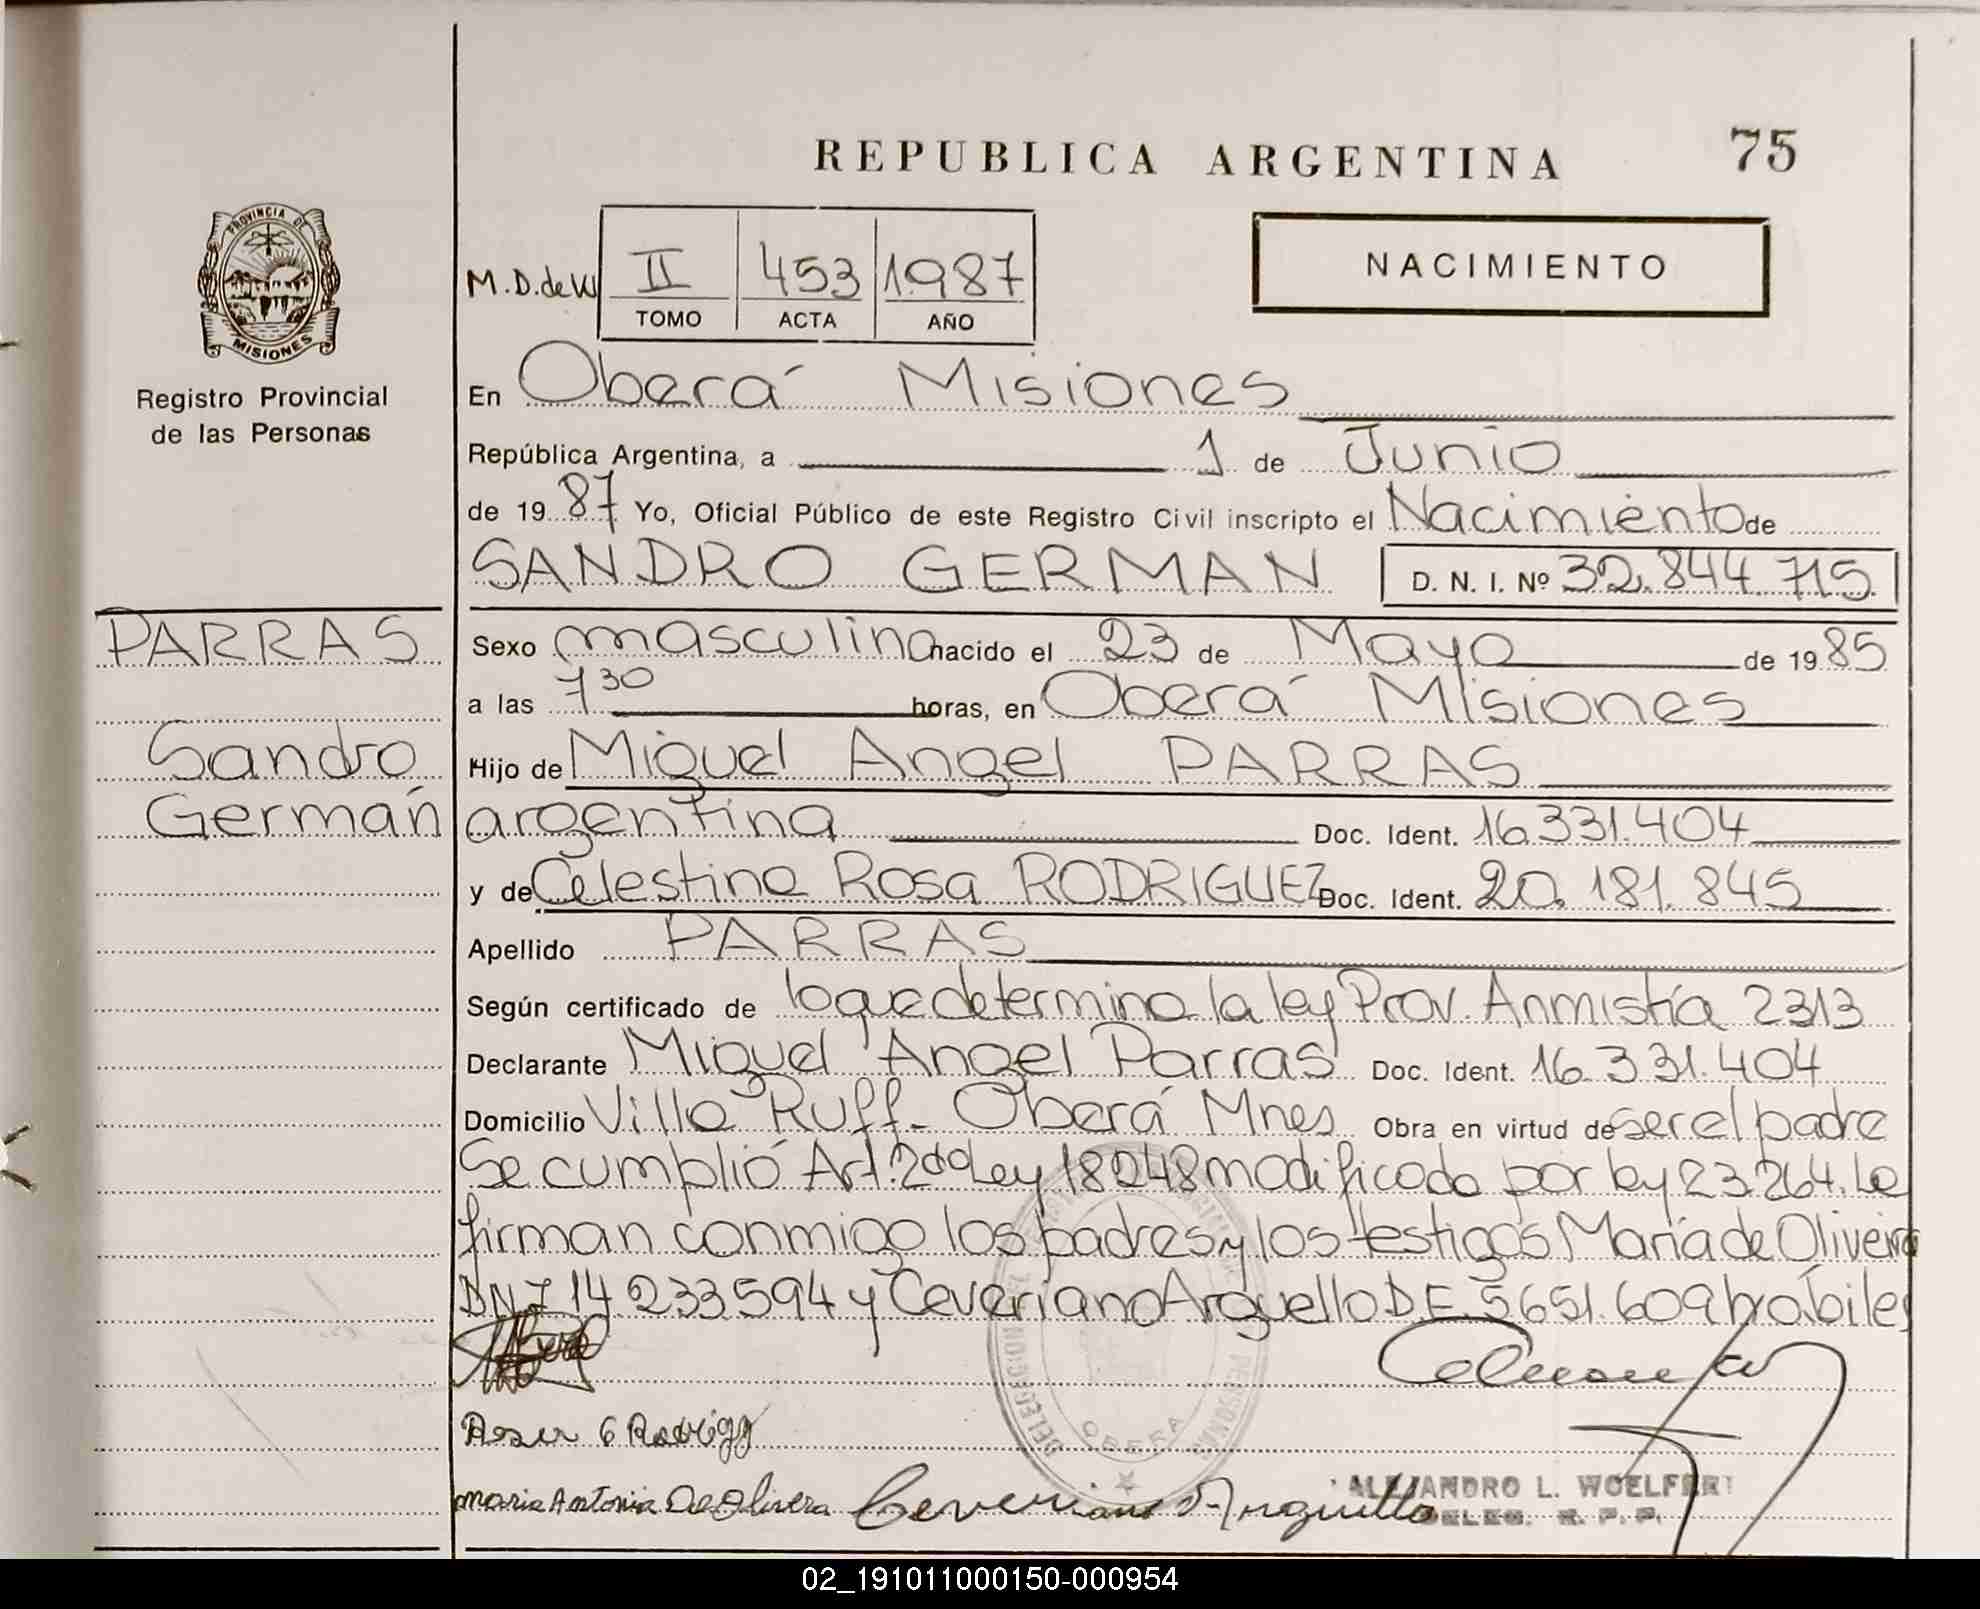 REPUBLICA ARGENTINA
75
PROVINCIA DE
MISIONES
Registro Provincial
de las Personas
M.D.de W
II
453
1987
TOMO
ACTA
AÑO
NACIMIENTO
En Oberá Misiones
República Argentina, a 1 de Junio
de 1987 Yo, Oficial Público de este Registro Civil inscripto el Nacimiento de
SANDRO GERMAN D. N. I. Nº 32.844.715
PARRAS
Sandro
Germán
Sexo masculino nacido el 23 de Mayo de 1985
a las 7 30 horas, en Oberá Misiones
Hijo de Miguel Angel PARRAS
argentina Doc. Ident. 16.331.404
y de Celestina Rosa RODRIGUEZ Doc. Ident. 20.181.845
Apellido PARRAS
Según certificado de lo que determina la ley Prov. Anmistía 2313
Declarante Miguel Angel Parras Doc. Ident. 16.331.404
Domicilio Villa Ruff- Oberá Mnes Obra en virtud de ser el padre
Se cumplió Art. 2do Ley 18248 modificada por ley 23.264. Le
firman conmigo los padres y los testigos María de Oliveira
DNI 14.233.594 y Ceveriano Arguello D.E. 5.651.609 hábiles
maria Antonia De Olivera
OBERA
ALEJANDRO L. WOELFERT
DELEG. R. P. P.
02_191011000150-000954